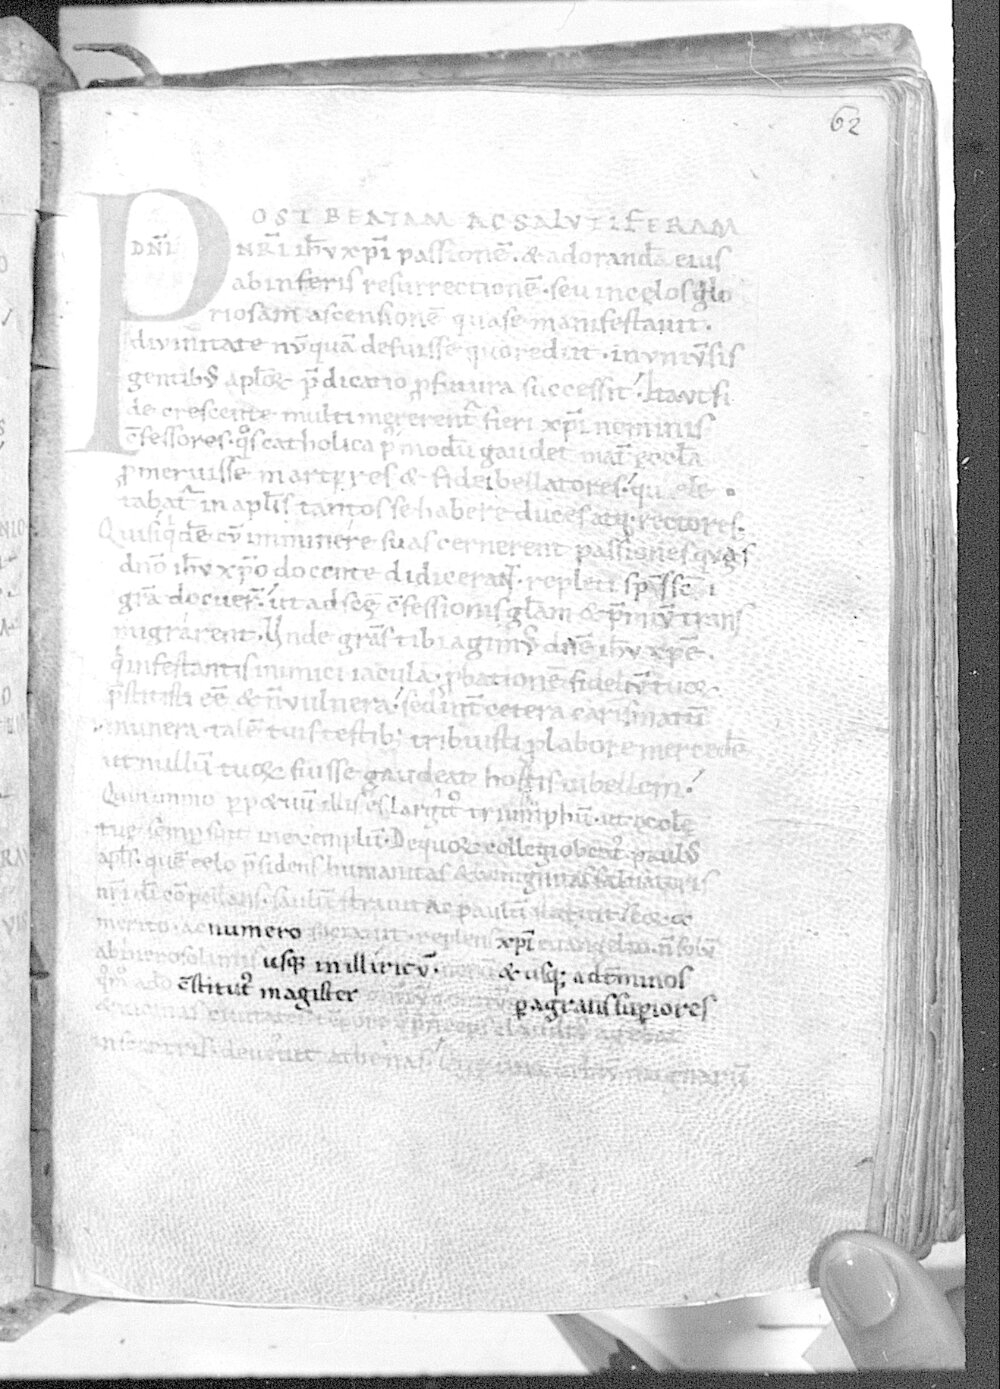 62
POST BEATAM AC SALVTIFERAM
DNI NRI ihv xpi passionē. & adorandā eius
ab inferis resurrectionē. seu in cęlos glo
riosam ascensionē qua se manifestauit.
diuinitate nūquā defuisse quo rediit. in vniūsis
gentibꝰ aplōꝝ p̄dicatio ꝓfutura successit. Ita ut fi
de crescente multi mererent̄ fieri xp̄i nominis
c̄fessores. q̊s catholica modū gaudet mat̄ ęccl̄a
ꝓmeruisse martyres & fidei bellatores. que lę
tabat̄ in apl̄is tantos se habere duces atq; rectores.
Quisq̇dē cū imminere suas cernerent passiones quas
dn̄o ihv xp̄o docente didicerant. repleti sp̄s sc̄i
gr̄a docuer̄. ut ad scę c̄fessionis gl̄am & p̄miū trans
migrarent. Unde gr̄as tibi agimꝰ dn̄e ihv xp̄e.
q̇ infestantis inimici iacula. ꝓbationē fideliū tuoꝝ
p̄stitisti eē & n̄ vulnera. sed int̄ cetera carismatū
munera. talē tuis testibꝰ tribuisti ꝓ labore mercedē
ut nullū tuoꝝ fuisse gaudeat hostis inbellem.
Quin immo ꝑpetuū illis es largitꝰ triumphū. ut ęccl̄ę
tuę semꝑ sint in exemplū. De quoꝝ collegio beatꝰ paulꝰ
apl̄s. quē cęlo p̄sidens humanitas & benignitas saluatoris
nr̄i dī cōpellans. saulū strauit ac paulū
merito. ac numero replens xp̄i euangelio. n̄ solū
ab hierosolimis usq; in illiricū. & usq; ad tminos
c̄stitutꝰ magister ꝑagrans supiores
athenas.